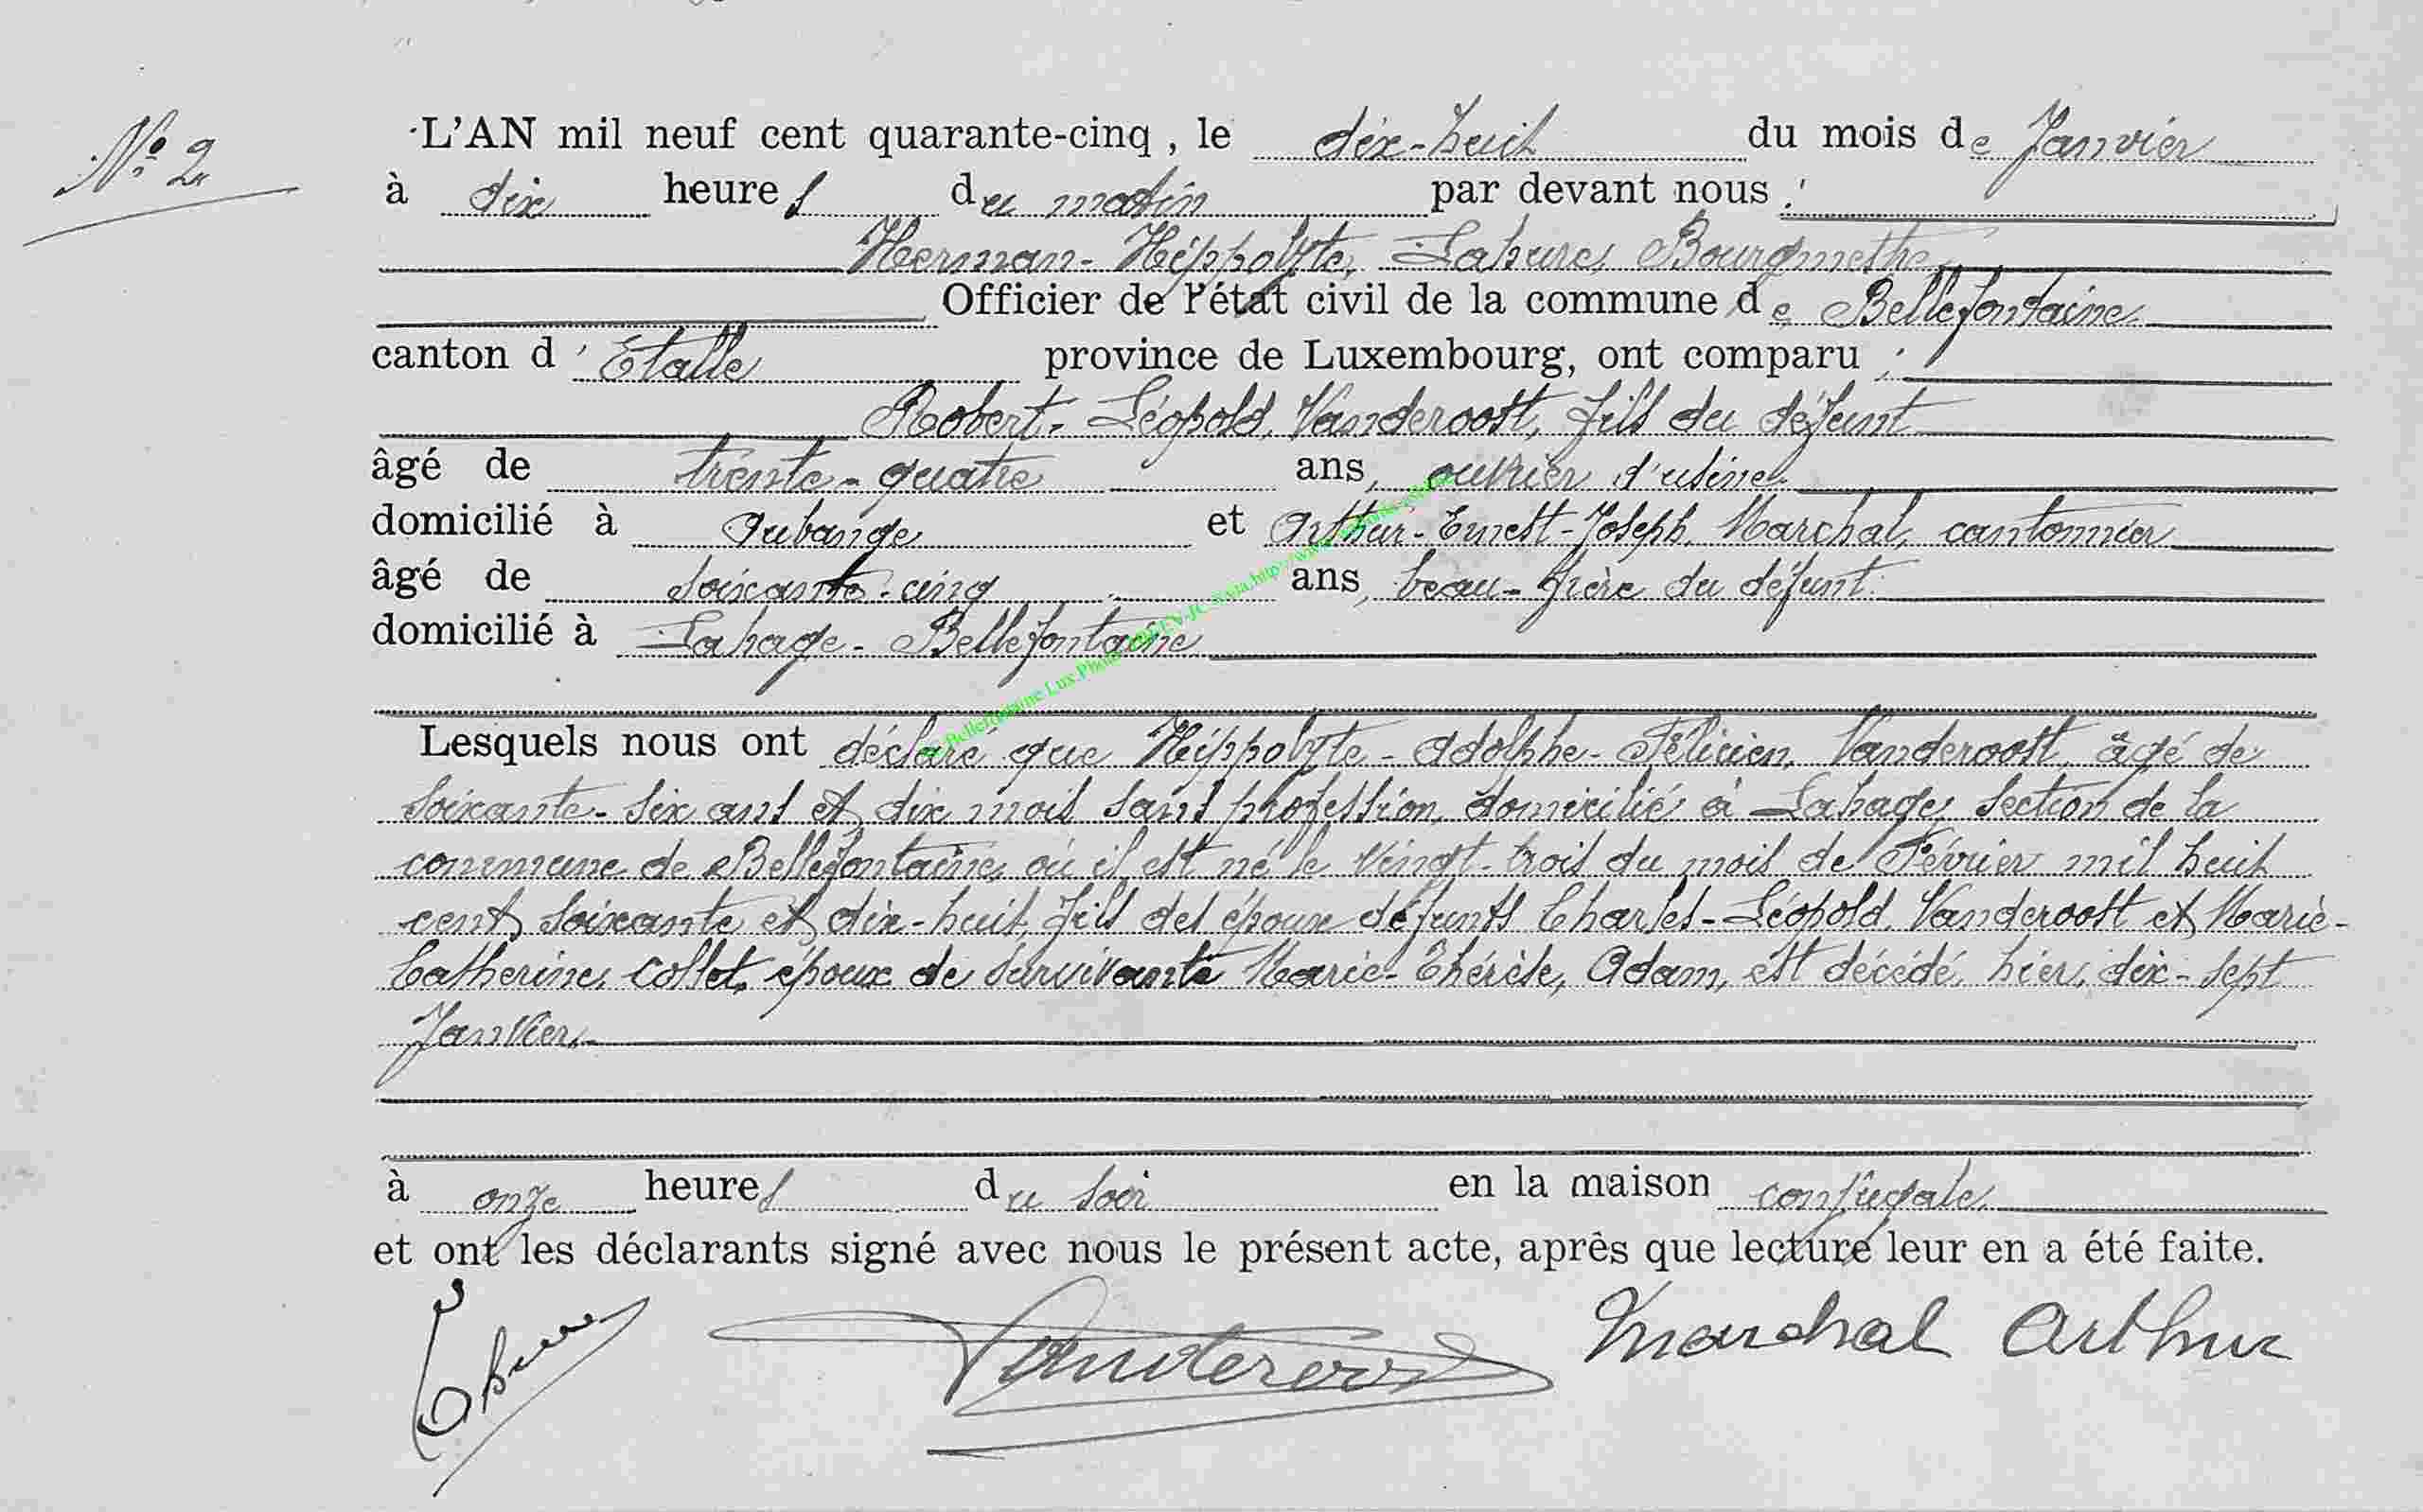 N° 2
L'AN mil neuf cent quarante-cinq, le dix-huit du mois de Janvier
à dix heures du matin par devant nous :
Herman-Hippolyte, Lahure, Bourgmestre
Officier de l'état civil de la commune de Bellefontaine
canton d'Etalle province de Luxembourg, ont comparu :
Robert-Léopold, Vanderoost, fils du défunt
âgé de trente-quatre ans, ouvrier d'usine
domicilié à Aubange et Arthur-Ernest-Joseph, Marchal, cantonnier
âgé de soixante-cinq ans, beau-frère du défunt
domicilié à Lahage-Bellefontaine
Lesquels nous ont déclaré que Hippolyte-Adolphe-Félicien, Vanderoost, âgé de
soixante-six ans et dix mois sans profession, domicilié à Lahage, section de la
commune de Bellefontaine, où il est né le vingt-trois du mois de Février mil huit
cent soixante et dix-huit, fils des époux défunts Charles-Léopold, Vanderoost et Marie-
Catherine, Collet, époux de survivante Marie-Thérèse, Adam, est décédé, hier, dix-sept
Janvier.
à onze heures du soir en la maison conjugale
et ont les déclarants signé avec nous le présent acte, après que lecture leur en a été faite.
Vanderoost Marchal Arthur